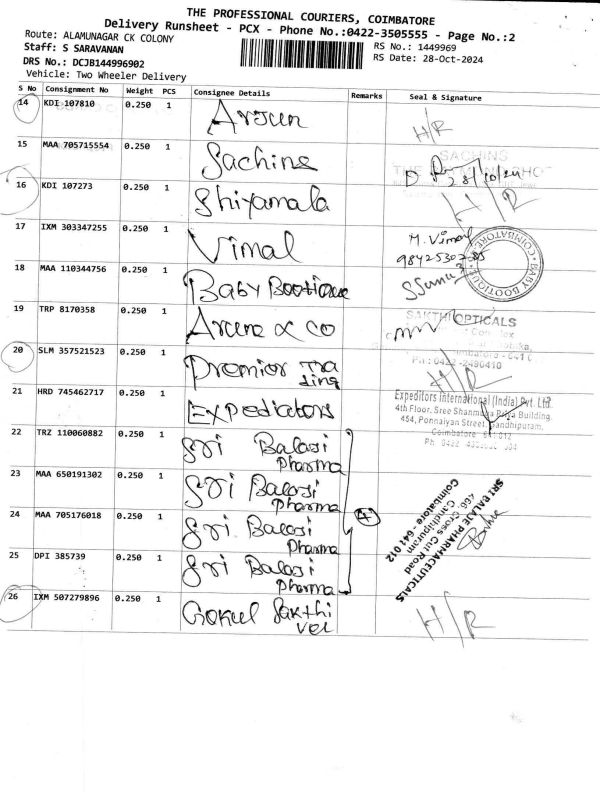 THE PROFESSIONAL COURIERS, COIMBATORE
Delivery Runsheet - PCX - Phone No.:0422-3505555 - Page No.:2
Route: ALAMUNAGAR CK COLONY
Staff: S SARAVANAN
DRS No.: DCJB144996902
Vehicle: Two Wheeler Delivery
RS No.: 1449969
RS Date: 28-Oct-2024
S No Consignment No Weight PCS Consignee Details Remarks Seal & Signature
14 KDI 107810 0.250 1 Arjun H/R
15 MAA 705715554 0.250 1 Sachins SACHINS 28/10/24
16 KDI 107273 0.250 1 Shiyamala H/R
17 IXM 303347255 0.250 1 Vimal M. Vimal
18 MAA 110344756 0.250 1 Baby Bootique BABY BOOTIQUE COIMBATORE
19 TRP 8170358 0.250 1 Arun & co SAKTHI OPTICALS
Ph : 0422 - 2490410
20 SLM 357521523 0.250 1 Premior Tra
ding H/R
21 HRD 745462717 0.250 1 Expediators
Expeditors International (India) Pvt. Ltd.
4th Floor, Sree Shanmuga Priya Building,
454, Ponnaiyan Street, Gandhipuram,
Coimbatore 641 012
22 TRZ 110060882 0.250 1 Sri Balaji
Pharma
23 MAA 650191302 0.250 1 Sri Balaji
Pharma
24 MAA 705176018 0.250 1 Sri Balaji
Pharma
4
25 DPI 385739 0.250 1 Sri Balaji
Pharma
SRI BALAJE PHARMACEUTICALS
466, Cross Cut Road
Gandhipuram
Coimbatore - 641 012
26 IXM 507279896 0.250 1 Gokul Sakthi
vel H/R